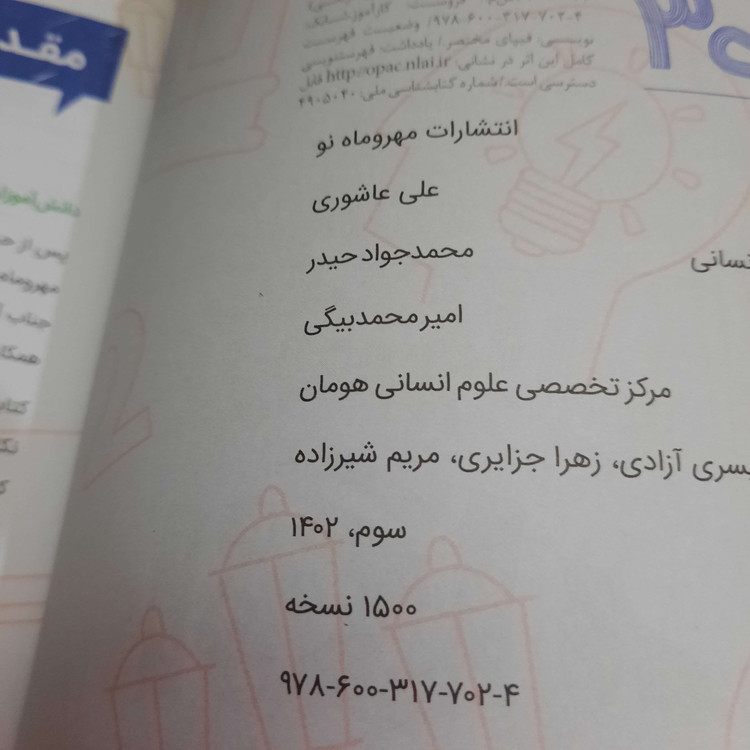 ۳۰
۹۷۸-۶۰۰-۳۱۷-۷۰۲-۴/ وضعیت فهرست
نویسی: فیپای مختصر/ یادداشت: فهرستنویسی
کامل این اثر در نشانی: http://opac.nlai.ir قابل
دسترسی است/ شماره کتابشناسی ملی: ۴۹۰۵۰۴۰
انتشارات مهروماه نو
علی عاشوری
محمدجواد حیدر
امیرمحمدبیگی
مرکز تخصصی علوم انسانی هومان
آزادی، زهرا جزایری، مریم شیرزاده
سوم، ۱۴۰۲
۱۵۰۰ نسخه
۹۷۸-۶۰۰-۳۱۷-۷۰۲-۴
پس از